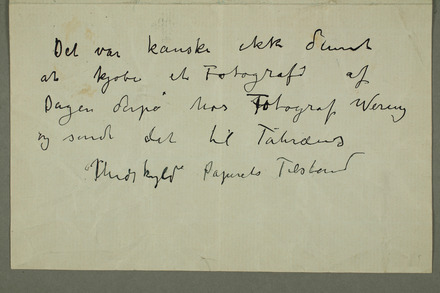 Det var kanske ikke dumt
at kjøbe et Fotografi af
Dagen derpå hos Fotograf Wering
og sende det til Tahræus
"Undskyld" Papirets Tilstand